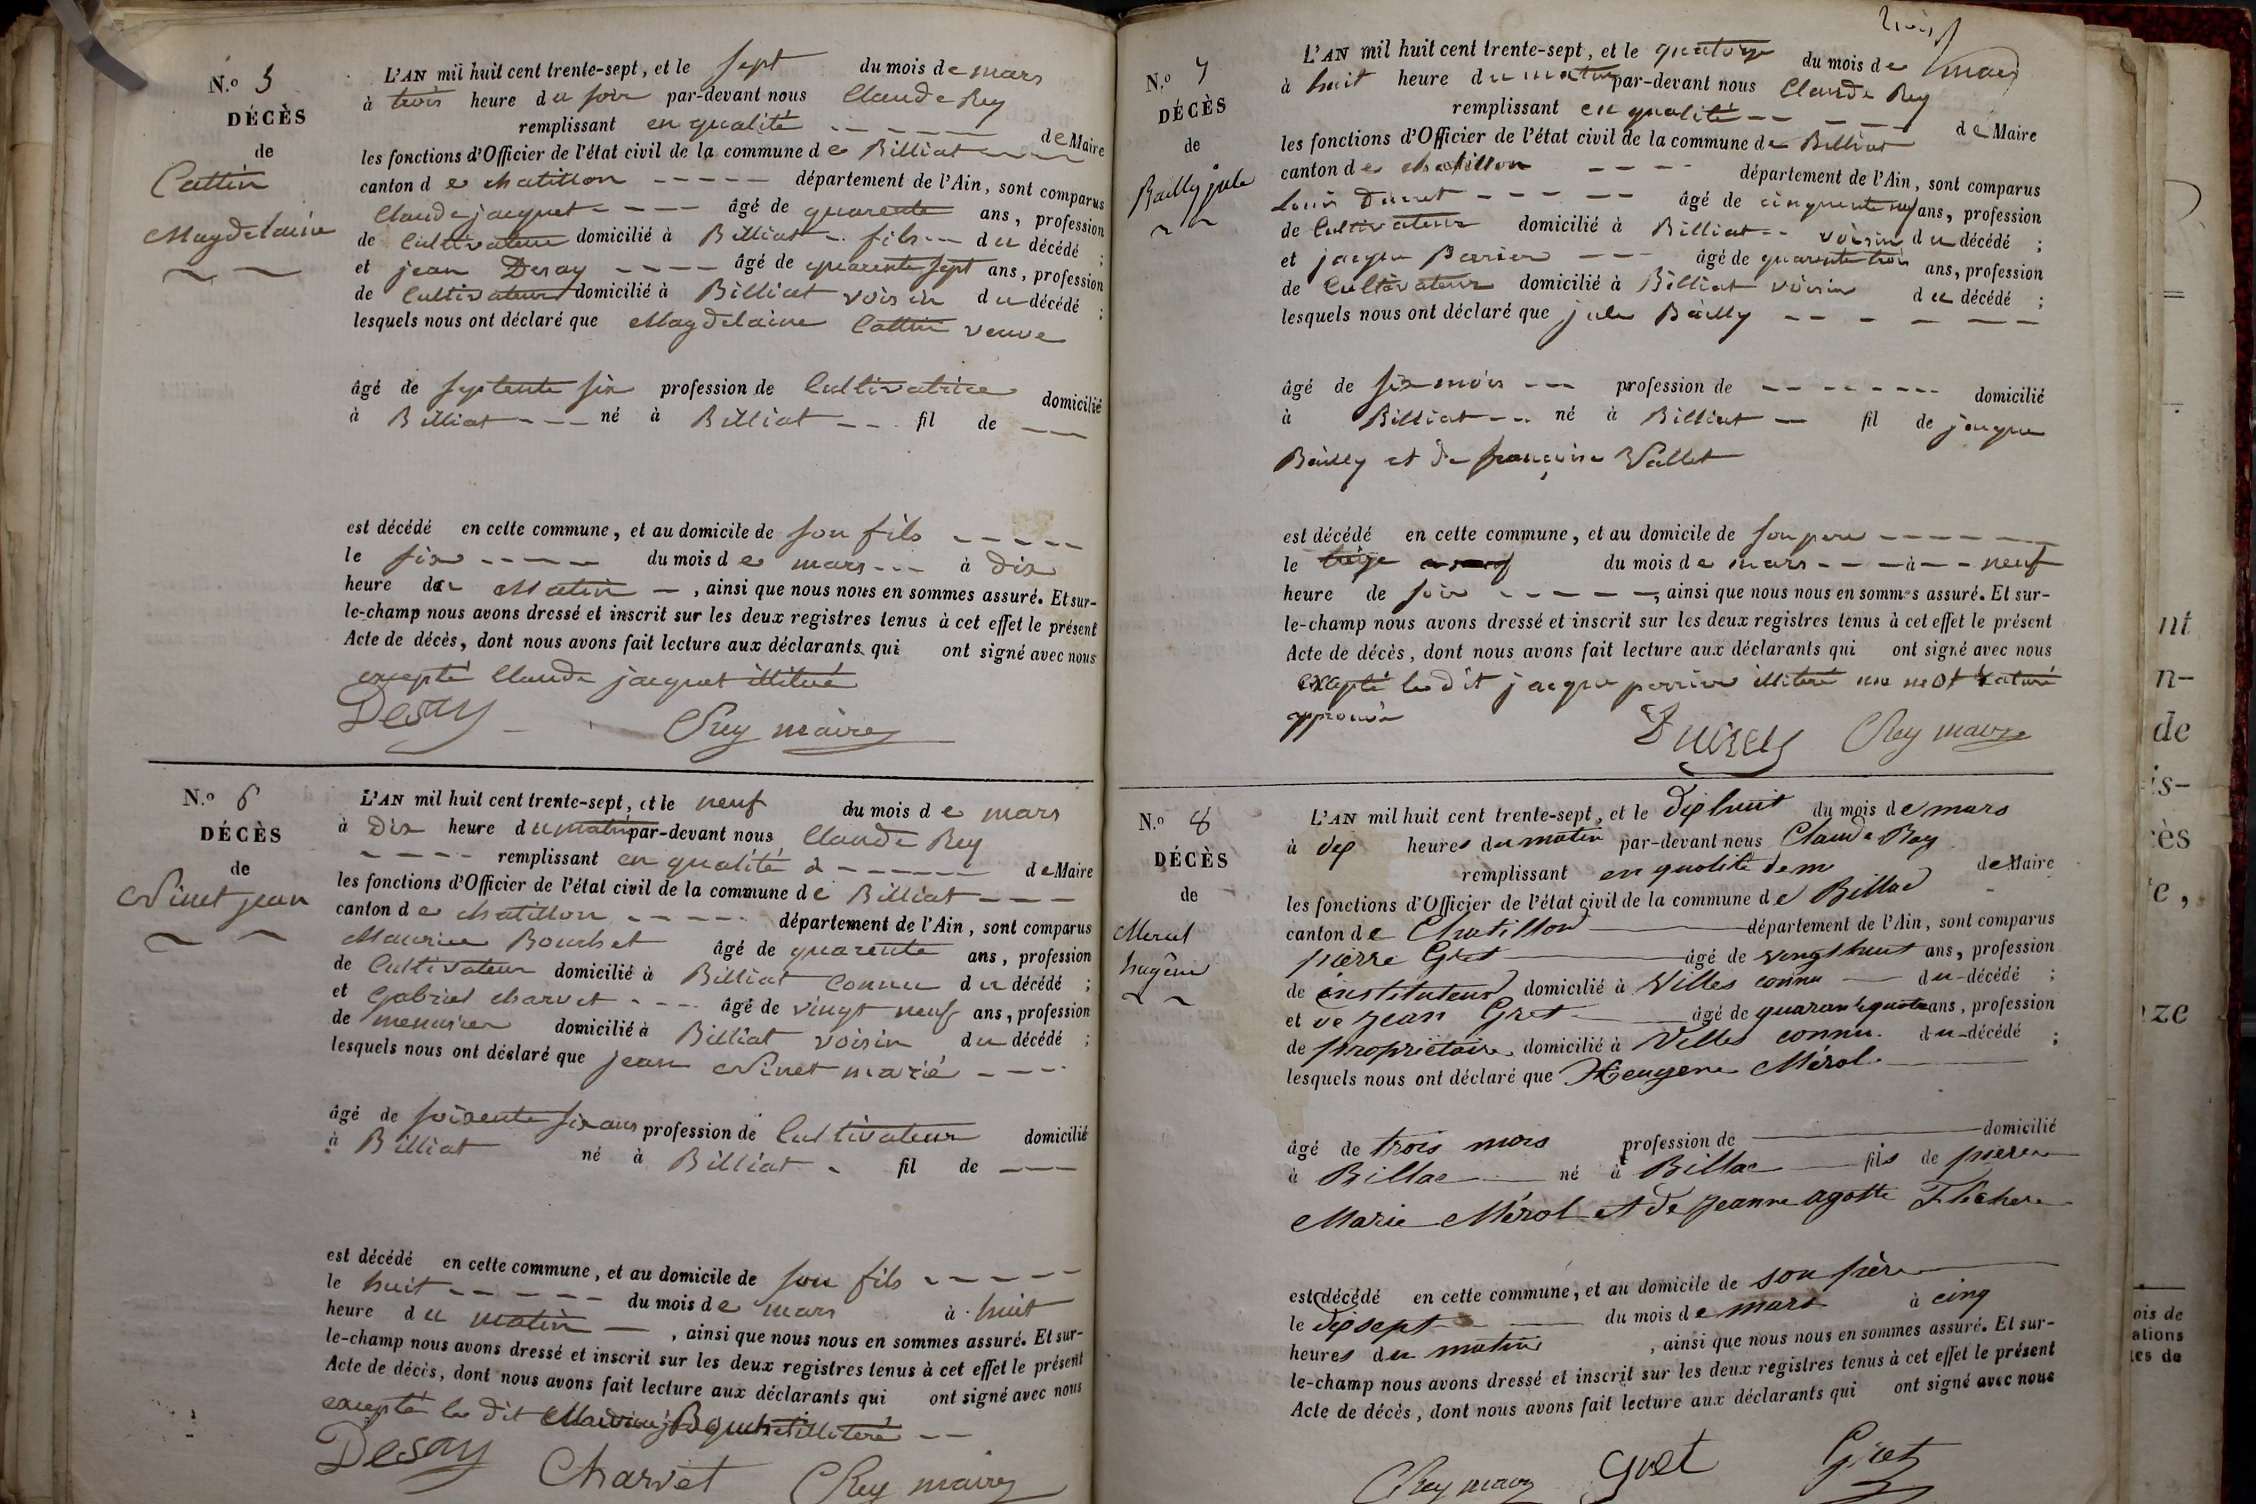 N.o 5
DÉCÈS
de
Cattin
Magdelaine
L'AN mil huit cent trente-sept, et le sept du mois de mars
à trois heure du soir par-devant nous Claude Rey
remplissant en qualité de Maire
les fonctions d'Officier de l'état civil de la commune de Billiat
canton de chatillon département de l'Ain, sont comparus
Claude jacquet âgé de quarente ans, profession
de Cultivateur domicilié à Billiat fils du décédé ;
et jean Desay âgé de quarente sept ans, profession
de Cultivateur domicilié à Billiat voisin du décédé ;
lesquels nous ont déclaré que Magdelaine Cattin veuve
âgé de septente six profession de Cultivatrice domicilié
à Billiat né à Billiat fil de
est décédé en cette commune, et au domicile de son fils
le six du mois de mars à dix
heure du Matin , ainsi que nous nous en sommes assuré. Et sur-
le-champ nous avons dressé et inscrit sur les deux registres tenus à cet effet le présent
Acte de décès, dont nous avons fait lecture aux déclarants qui ont signé avec nous
excepté Claude jacquet illitéré
Desay CRey maire
N.o 6
DÉCÈS
de
Ninet jean
L'AN mil huit cent trente-sept, et le neuf du mois de mars
à Dix heure du matin par-devant nous Claude Rey
remplissant en qualité de Maire
les fonctions d'Officier de l'état civil de la commune de Billiat
canton de chatillon département de l'Ain, sont comparus
Maurice Bouchet âgé de quarente ans, profession
de Cultivateur domicilié à Billiat connu du décédé ;
et Gabriel charvet âgé de vingt neuf ans, profession
de menusier domicilié à Billiat voisin du décédé ;
lesquels nous ont déclaré que jean Ninet marié
âgé de soixente six ans profession de Cultivateur domicilié
à Billiat né à Billiat fil de
est décédé en cette commune, et au domicile de son fils
le huit du mois de mars à huit
heure du matin , ainsi que nous nous en sommes assuré. Et sur-
le-champ nous avons dressé et inscrit sur les deux registres tenus à cet effet le présent
Acte de décès, dont nous avons fait lecture aux déclarants qui ont signé avec nous
excepté le dit Bouchet illitéré
Desay Charvet CRey maire
trois
N.o 7
DÉCÈS
de
Bailly jule
L'AN mil huit cent trente-sept, et le quatorze du mois de mars
à huit heure du matin par-devant nous Claude Rey
remplissant en qualité de Maire
les fonctions d'Officier de l'état civil de la commune de Billiat
canton de chatillon département de l'Ain, sont comparus
Louis Ducret âgé de cinquente neuf ans, profession
de Cultivateur domicilié à Billiat voisin du décédé ;
et jacque Perrier âgé de quarente trois ans, profession
de Cultivateur domicilié à Billiat voisin du décédé ;
lesquels nous ont déclaré que jule Bailly
âgé de six mois profession de domicilié
à Billiat né à Billiat fil de jacque
Bailly et de françoise Vallet
est décédé en cette commune, et au domicile de son pere
le treize du mois de mars à neuf
heure de soir , ainsi que nous nous en sommes assuré. Et sur-
le-champ nous avons dressé et inscrit sur les deux registres tenus à cet effet le présent
Acte de décès, dont nous avons fait lecture aux déclarants qui ont signé avec nous
excepté le dit jacque perrier illitéré un mot raturé
approuvé
CRey maire
N.o 8
DÉCÈS
de
Merol
hugène
L'AN mil huit cent trente-sept, et le dix huit du mois de mars
à dix heures du matin par-devant nous Claude Rey
remplissant en qualité de m de Maire
les fonctions d'Officier de l'état civil de la commune de Billiac
canton de Chatillon département de l'Ain, sont comparus
pierre Gret âgé de vingt huit ans, profession
de instituteur domicilié à Villes connu du décédé ;
et de Jean Gret âgé de quarante quatre ans, profession
de proprietaire domicilié à Villes connu du décédé ;
lesquels nous ont déclaré que Heugene Mérol
âgé de trois mois profession de domicilié
à Billac né à Billac fils de pierre
Marie Mérol et de Jeanne agatte
est décédé en cette commune, et au domicile de son père
le dix sept du mois de mars à cinq
heures du matin , ainsi que nous nous en sommes assuré. Et sur-
le-champ nous avons dressé et inscrit sur les deux registres tenus à cet effet le présent
Acte de décès, dont nous avons fait lecture aux déclarants qui ont signé avec nous
CRey maire Gret Gret
nt
n-
de
is-
cès
te,
ze
ois de
ations
es de